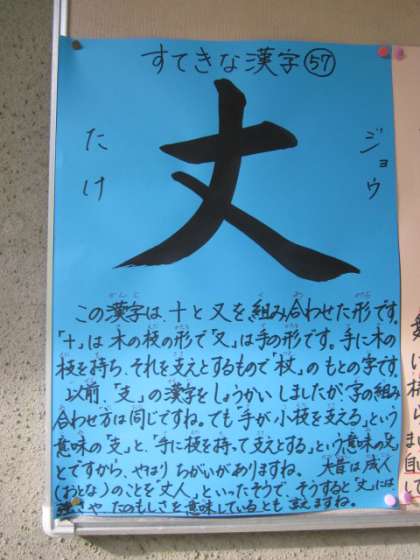 すてきな漢字 57
たけ
丈
ジョウ
この漢字は、十と又を組み合わせた形です。
「十」は木の枝の形で「又」は手の形です。手に木の
枝を持ち、それを支えとするもので「杖」のもとの字です。
以前、「支」の漢字をしょうかいしましたが字の組み
合わせ方は同じですね。でも「手が小枝を支える」という
意味の「支」と、「手に枝を持って支えとする」という意味の「丈」
とですから、やはりちがいがありますね。大昔は成人
(おとな)のことを「丈人」といったそうで、そうすると「丈」には
強さや たのもしさを意味しているとも言えますね。